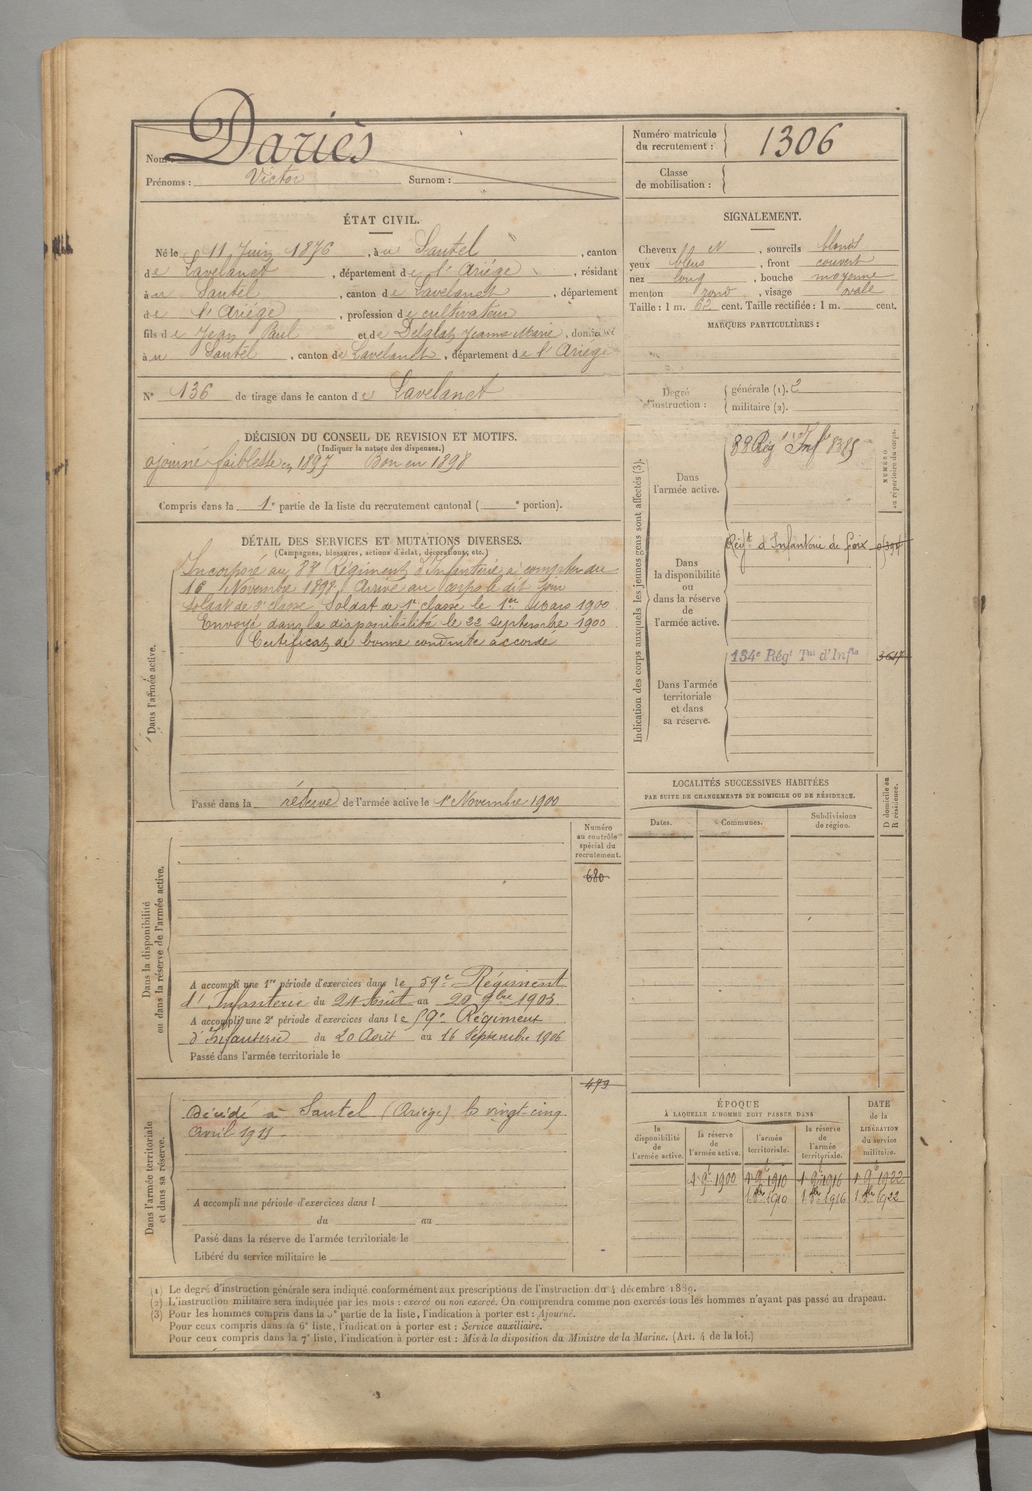 Nom : Dariès
Prénoms : Victor Surnom :
Numéro matricule du recrutement : 1306
Classe de mobilisation :
ÉTAT CIVIL.
Né le 11 Juin 1876, à Sautel, canton
de Lavelanet, département de l'Ariège, résidant
à Sautel, canton de Lavelanet, département
de l'Ariège, profession de cultivateur
fils de Jean Paul et de Delglat Jeanne Marie, domicilié
à Sautel, canton de Lavelanet, département de l'Ariège
N° 136 de tirage dans le canton de Lavelanet
SIGNALEMENT.
Cheveux N, sourcils blonds
yeux bleus, front couvert
nez long, bouche moyenne
menton rond, visage ovale
Taille : 1 m. 62 cent. Taille rectifiée : 1 m. cent.
MARQUES PARTICULIÈRES :
Degré d'instruction :
générale (1). 2
militaire (2).
DÉCISION DU CONSEIL DE REVISION ET MOTIFS.
(Indiquer la nature des dispenses.)
ajourné faiblesse en 1897 Bon en 1898
Compris dans la 1e partie de la liste du recrutement cantonal ( e portion).
DÉTAIL DES SERVICES ET MUTATIONS DIVERSES.
(Campagnes, blessures, actions d'éclat, décorations, etc.)
Dans l'armée active.
Incorporé au 88 Régiment d'Infanterie à compter du
16 Novembre 1898. Arrivé au corps le dit jour
soldat de 2e classe. Soldat de 1re classe le 1er Mars 1900
Envoyé dans la disponibilité le 22 septembre 1900
Certificat de bonne conduite accordé
Passé dans la réserve de l'armée active le 1er Novembre 1900
Indication des corps auxquels les jeunes gens sont affectés (3).
NUMÉRO au répertoire du corps.
Dans l'armée active.
88 Rég't Inf'ie 8385
Dans la disponibilité ou dans la réserve de l'armée active.
Rég't d'Infanterie de Foix
Dans l'armée territoriale et dans sa réserve.
134e Rég't T'al d'Inf'ie
LOCALITÉS SUCCESSIVES HABITÉES
PAR SUITE DE CHANGEMENTS DE DOMICILE OU DE RÉSIDENCE.
Dates. Communes. Subdivisions de région. D domicile ou R résidence.
Dans la disponibilité ou dans la réserve de l'armée active.
Numéro au contrôle spécial du recrutement.
680
A accompli une 1re période d'exercices dans le 59e Régiment
d'Infanterie du 24 Août au 20 9bre 1903
A accompli une 2e période d'exercices dans le 59e Régiment
d'Infanterie du 20 Août au 16 Septembre 1906
Passé dans l'armée territoriale le
Dans l'armée territoriale et dans sa réserve.
Décédé à Sautel (Ariège) le vingt-cinq
avril 1911
A accompli une période d'exercices dans l
du au
Passé dans la réserve de l'armée territoriale le
Libéré du service militaire le
ÉPOQUE
À LAQUELLE L'HOMME DOIT PASSER DANS
DATE de la LIBÉRATION du service militaire.
la disponibilité de l'armée active. la réserve de l'armée active. l'armée territoriale. la réserve de l'armée territoriale.
1 9e 1900 1 9e 1910 1 9e 1916 1 9e 1922
1 8bre 1910 1 8bre 1916 1 8bre 1922
(1) Le degré d'instruction générale sera indiqué conformément aux prescriptions de l'instruction du 4 décembre 1889.
(2) L'instruction militaire sera indiquée par les mots : exercé ou non exercé. On comprendra comme non exercés tous les hommes n'ayant pas passé au drapeau.
(3) Pour les hommes compris dans la 5e partie de la liste, l'indication à porter est : Ajourné.
Pour ceux compris dans la 6e liste, l'indication à porter est : Service auxiliaire.
Pour ceux compris dans la 7e liste, l'indication à porter est : Mis à la disposition du Ministre de la Marine. (Art. 4 de la loi.)